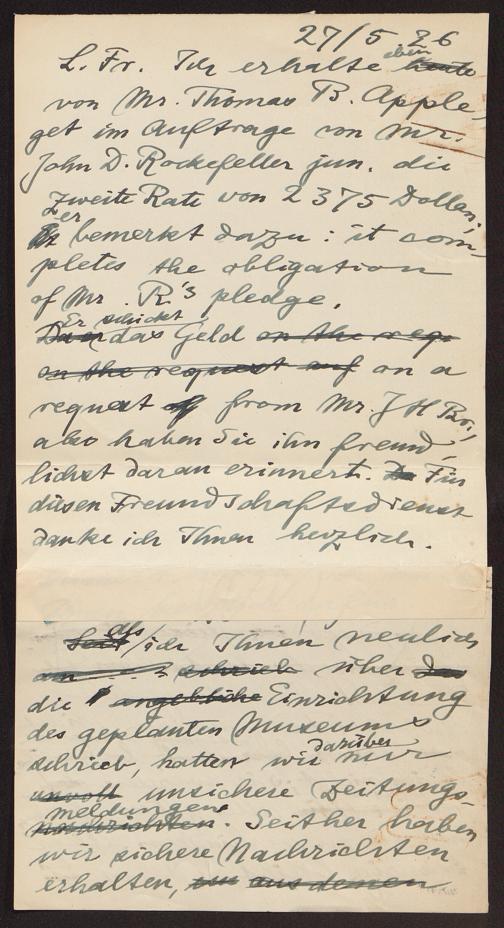 27/5 26
L. Fr. Ich erhalte eben heute
von Mr. Thomas B. Apple-
get im Auftrage von Mr.
John D. Rockefeller jun. die
zweite Rate von 2375 Dollar;
er bemerkt dazu: it com-
pletes the obligation
of Mr. R's pledge.
Er schickt
das Geld on the req
on the request auf on a
request of from Mr. J H Br.,
also haben Sie ihn freund-
lichst daran erinnert. Für
diesen Freundschaftsdienst
danke ich Ihnen herzlich.
als ich Ihnen neulich
schrieb über
die angebliche Einrichtung
des geplanten Museums
schrieb, hatten wir darüber nur
unsichere Zeitungs-
meldungen
nachrichten. Seither haben
wir sichere Nachrichten
erhalten, aus denen